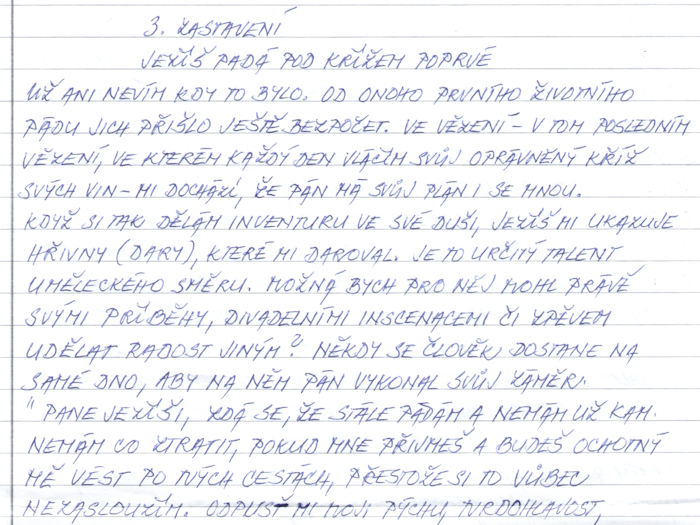 3. ZASTAVENÍ
JEŽÍŠ PADÁ POD KŘÍŽEM POPRVÉ
UŽ ANI NEVÍM KDY TO BYLO. OD ONOHO PRVNÍHO ŽIVOTNÍHO
PÁDU JICH PŘIŠLO JEŠTĚ BEZPOČET. VE VĚZENÍ – V TOM POSLEDNÍM
VĚZENÍ, VE KTERÉM KAŽDÝ DEN VLÁČÍM SVŮJ OPRÁVNĚNÝ KŘÍŽ
SVÝCH VIN – MI DOCHÁZÍ, ŽE PÁN MÁ SVŮJ PLÁN I SE MNOU.
KDYŽ SI TAK DĚLÁM INVENTURU VE SVÉ DUŠI, JEŽÍŠ MI UKAZUJE
HŘIVNY (DARY), KTERÉ MI DAROVAL. JE TO URČITÝ TALENT
UMĚLECKÉHO SMĚRU. MOŽNÁ BYCH PRO NĚJ MOHL PRÁVĚ
SVÝMI PŘÍBĚHY, DIVADELNÍMI INSCENACEMI ČI ZPĚVEM
UDĚLAT RADOST JINÝM? NĚKDY SE ČLOVĚK DOSTANE NA
SAMÉ DNO, ABY NA NĚM PÁN VYKONAL SVŮJ ZÁMĚR.
"PANE JEŽÍŠI, ZDÁ SE, ŽE STÁLE PADÁM A NEMÁM UŽ KAM.
NEMÁM CO ZTRATIT, POKUD MNE PŘIJMEŠ A BUDEŠ OCHOTNÝ
MĚ VÉST PO TVÝCH CESTÁCH, PŘESTOŽE SI TO VŮBEC
NEZASLOUŽÍM. ODPUSŤ MI MOJI PÝCHU, TVRDOHLAVOST,